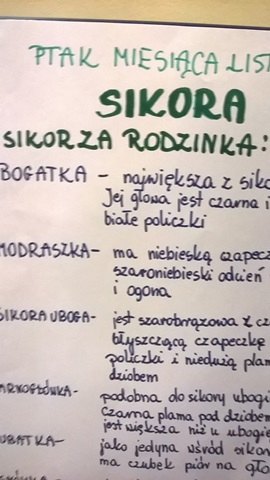 PTAK MIESIĄCA LIST
SIKORA
SIKORZA RODZINKA:
BOGATKA - największa z siko
Jej głowa jest czarna i
białe policzki
MODRASZKA- ma niebieską czapecz
szaroniebieski odcień
i ogona
SIKORA UBOGA- jest szarobrązowa z cz
błyszczącą czapeczkę
policzki i niedużą plam
dziobem
ARNOGŁÓWKA- podobna do sikory ubogi
Czarna plama pod dziobem
jest większa niż u ubogie
UBATKA- jako jedyna wśród sikor
ma czubek piór na gło